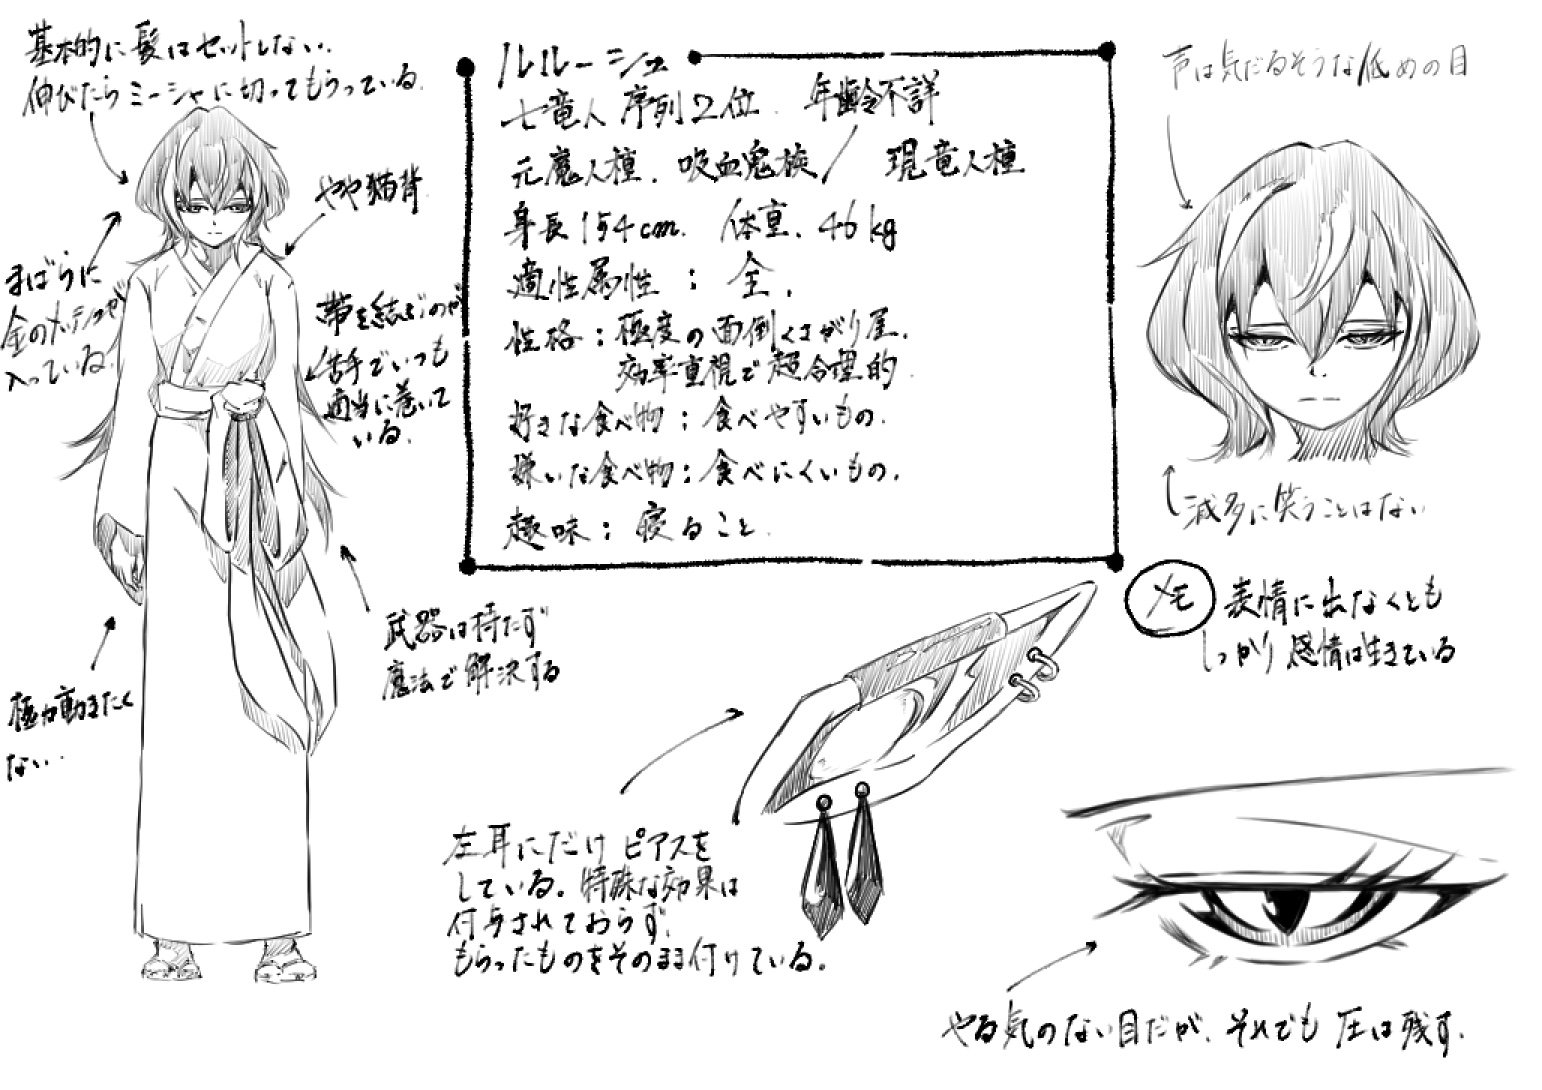 基本的に髪はセットしない.
伸びたらミーシャに切ってもらっている.
やや猫背
まばらに
金のメッシュが
入っている
帯を結ぶのが
苦手でいつも
適当に巻いて
いる.
極力動きたく
ない..
武器は持たず
魔法で解決する
ルルーシュ
七竜人 序列2位. 年齢不詳
元魔人種. 吸血鬼族/ 現竜人種
身長154cm. 体重.46kg
適性属性:全.
性格:極度の面倒くさがり屋.
効率重視で超合理的.
好きな食べ物:食べやすいもの.
嫌いな食べ物:食べにくいもの.
趣味:寝ること.
声は気だるそうな低めの目
滅多に笑うことはない
メモ 表情に出なくとも
しっかり感情は生きている
左耳にだけピアスを
している。特殊な効果は
付与されておらず.
もらったものをそのまま付けている.
やる気のない目だが. それでも圧は残す.